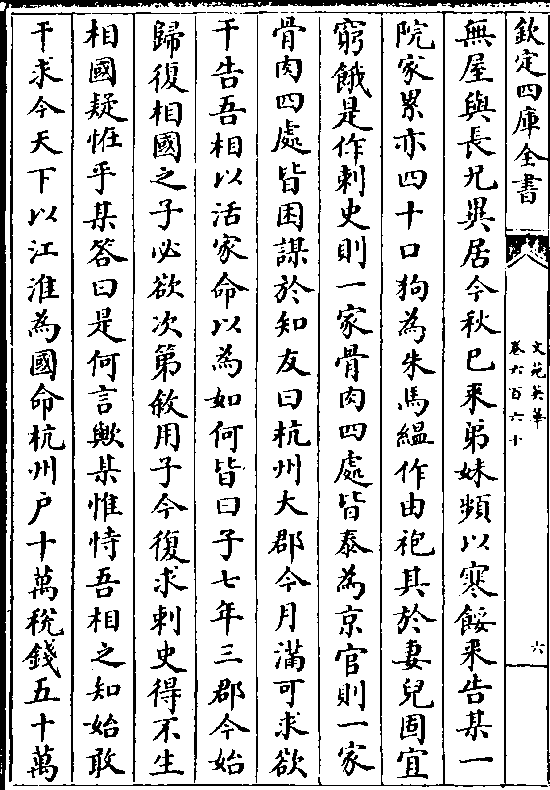 欽定四庫全書
文苑英華
卷六百六十
六
無屋與長兄異居今秋已來弟妹頻以寒餒来告某一
院家累亦四十口狗為朱馬緼作由袍其於妻兒固宜
窮餓是作刺史則一家骨肉四處皆泰為京官則一家
骨肉四處皆困謀於知友曰杭州大郡今月滿可求欲
干告吾相以活家命以為如何皆曰子七年三郡今始
歸復相國之子必欲次第敘用子今復求刺史得不生
相國疑恠乎某答曰是何言歟某惟恃吾相之知始敢
干求今天下以江淮為國命杭州户十萬稅錢五十萬